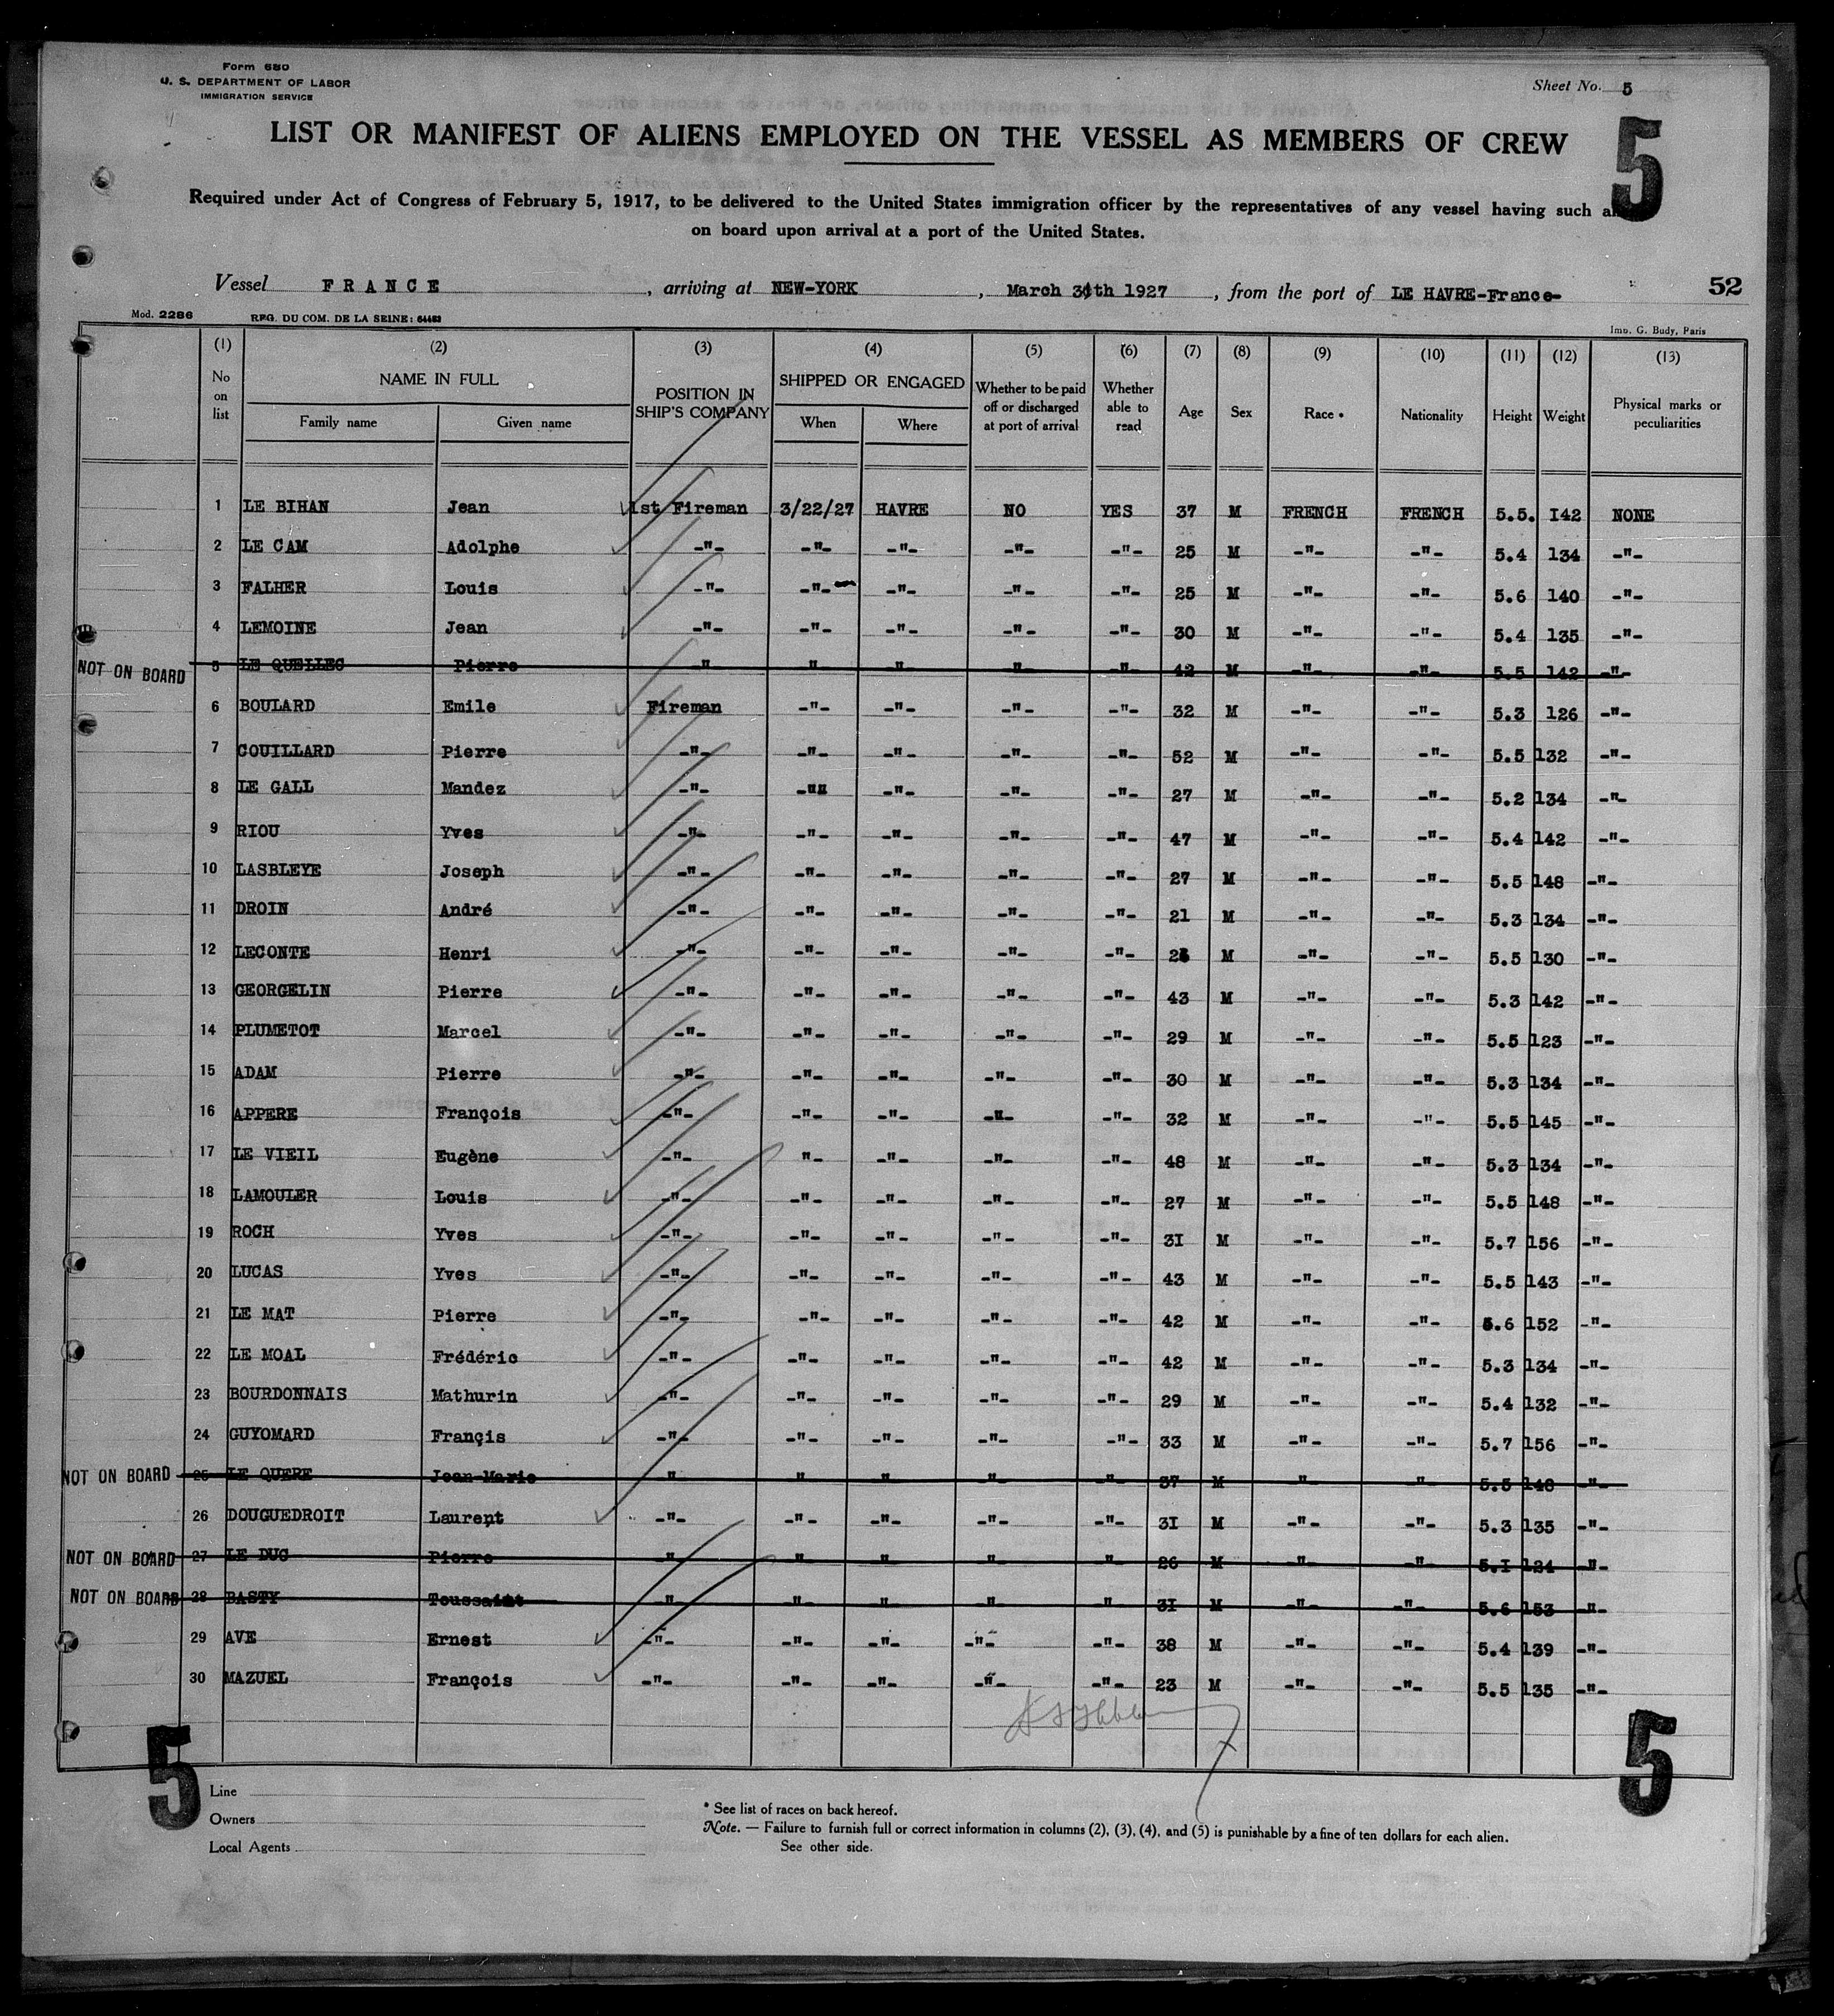 Form 680
U. S. DEPARTMENT OF LABOR
IMMIGRATION SERVICE
Sheet No. 5
LIST OR MANIFEST OF ALIENS EMPLOYED ON THE VESSEL AS MEMBERS OF CREW
5
Required under Act of Congress of February 5, 1917, to be delivered to the United States immigration officer by the representatives of any vessel having such
on board upon arrival at a port of the United States.
Vessel FRANCE, arriving at NEW-YORK, March 1927, from the port of LE HAVRE-France-
52
Mod. 2286 REG. DU COM. DE LA SEINE: 64483 Imp. G. Budy, Paris
(1) (2) (3) (4) (5) (6) (7) (8) (9) (10) (11) (12) (13)
No on list NAME IN FULL Family name Given name POSITION IN SHIP'S COMPANY SHIPPED OR ENGAGED When Where Whether to be paid off or discharged at port of arrival Whether able to read Age Sex Race * Nationality Height Weight Physical marks or peculiarities
1 LE BIHAN Jean 1st Fireman 3/22/27 HAVRE NO YES 37 M FRENCH FRENCH 5.5. I42 NONE
2 LE CAM Adolphe -"- -"- -"- -"- -"- 25 M -"- -"- 5.4 134 -"-
3 FALHER Louis -"- -"- -"- -"- -"- 25 M -"- -"- 5.6 140 -"-
4 LEMOINE Jean -"- -"- -"- -"- -"- 30 M -"- -"- 5.4 135 -"-
NOT ON BOARD 5 LE QUELLEC Pierre " " " " " 42 M -"- -"- 5.5 142 -"-
6 BOULARD Emile Fireman -"- -"- -"- -"- 32 M -"- -"- 5.3 126 -"-
7 COUILLARD Pierre -"- -"- -"- -"- -"- 52 M -"- -"- 5.5 132 -"-
8 LE GALL Mandez -"- -"" -"- -"- -"- 27 M -"- -"- 5.2 134 -"-
9 RIOU Yves -"- -"- -"- -"- -"- 47 M -"- -"- 5.4 142 -"-
10 LASBLEYE Joseph -"- -"- -"- -"- -"- 27 M -"- -"- 5.5 148 -"-
11 DROIN André -"- -"- -"- -"- -"- 21 M -"- -"- 5.3 134 -"-
12 LECONTE Henri -"- -"- -"- -"- -"- M -"- -"- 5.5 130 -"-
13 GEORGELIN Pierre -"- -"- -"- -"- -"- 43 M -"- -"- 5.3 142 -"-
14 PLUMETOT Marcel -"- -"- -"- -"- -"- 29 M -"- -"- 5.5 123 -"-
15 ADAM Pierre -"- -"- -"- -"- -"- 30 M -"- -"- 5.3 134 -"-
16 APPERE François -"- -"- -"- -"- -"- 32 M -"- -"- 5.5 145 -"-
17 LE VIEIL Eugène -"- "- -"- -"- -"- 48 M -"- -"- 5.3 134 -"-
18 LAMOULER Louis -"- -"- -"- -"- -"- 27 M -"- -"- 5.5 148 -"-
19 ROCH Yves -"- -"- -"- -"- -"- 3I M -"- -"- 5.7 156 -"-
20 LUCAS Yves -"- -"- -"- -"- -"- 43 M -"- -"- 5.5 143 -"-
21 LE MAT Pierre -"- -"- -"- -"- -"- 42 M -"- -"- 5.6 152 -"-
22 LE MOAL Frédéric -"- -"- -"- -"- -"- 42 M -"- -"- 5.3 134 -"-
23 BOURDONNAIS Mathurin -"- -"- -"- -"- -"- 29 M -"- -"- 5.4 132 -"-
24 GUYOMARD Françis -"- -"- -"- -"- -"- 33 M -"- -"- 5.7 156 -"-
NOT ON BOARD 25 LE QUERE Jean-Marie " " " " " 37 M " " 5.5 148 -"-
26 DOUGUEDROIT Laurent -"- -"- -"- -"- -"- 3I M -"- -"- 5.3 135 -"-
NOT ON BOARD 27 LE DUC Pierre " " " " " 26 M -"- -"- 5.I 124 -"-
NOT ON BOARD 28 BASTY Toussaint " " " " " 3I M -"- -"- 5.6 153 -"-
29 AVE Ernest -"- -"- -"- -"- -"- 38 M -"- -"- 5.4 139 -"-
30 MAZUEL François -"- -"- -"- -"- -"- 23 M -"- -"- 5.5 135 -"-
5
5
Line
Owners
Local Agents
* See list of races on back hereof.
Note. — Failure to furnish full or correct information in columns (2), (3), (4), and (5) is punishable by a fine of ten dollars for each alien.
See other side.